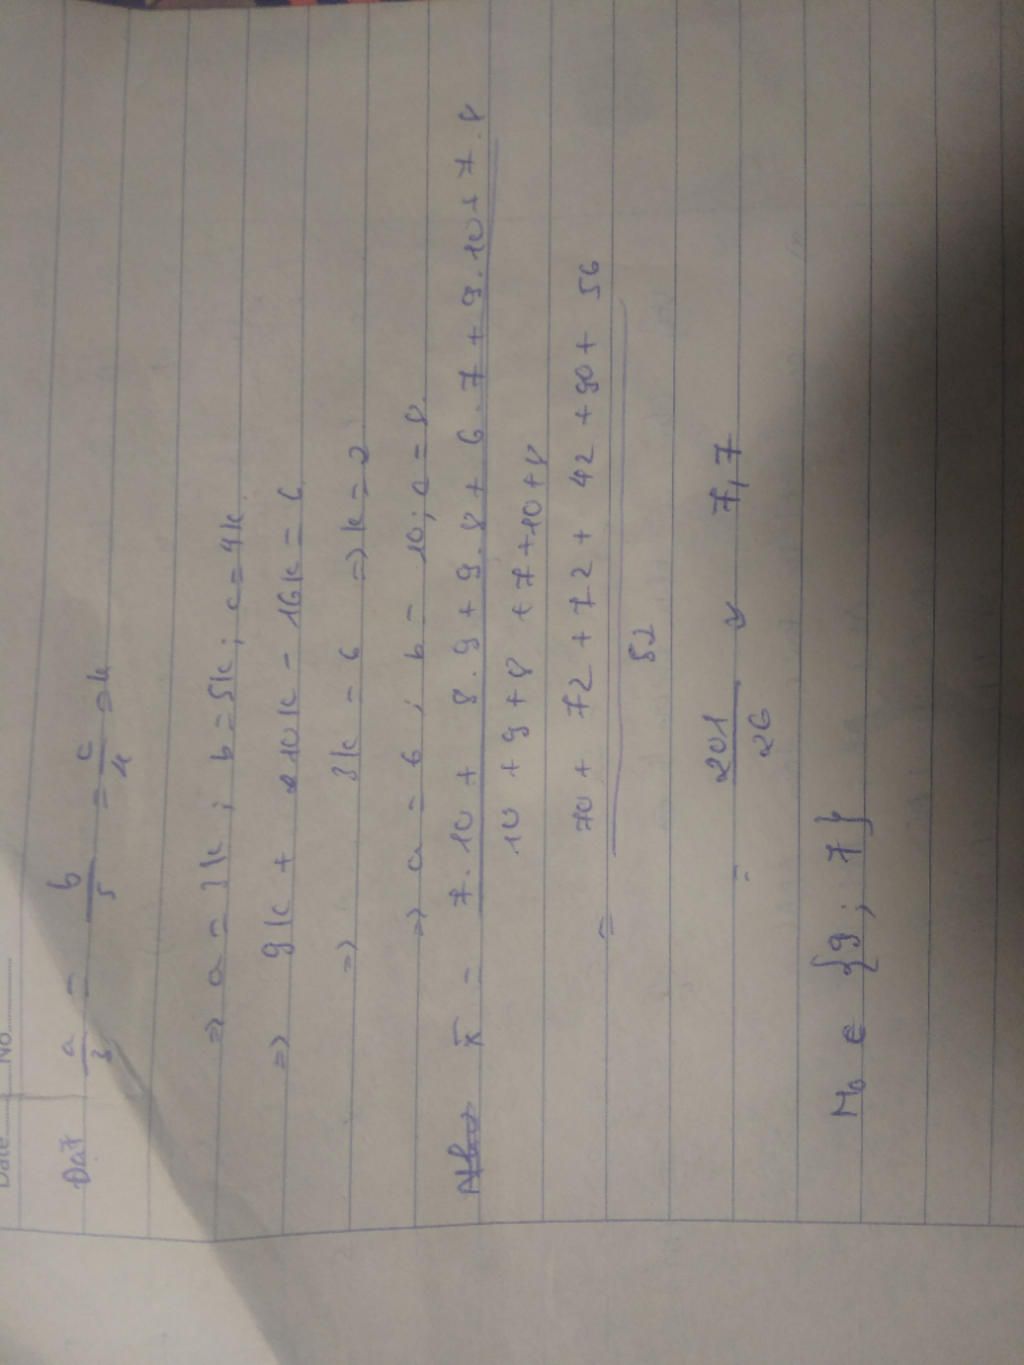 Date No
Đặt a/3 = b/5 = c/4 = k
=> a = 3k ; b = 5k ; c = 4k
=> 9k + 10k - 16k = 6
=> 3k = 6 => k = 2
=> a = 6 ; b = 10 ; c = 8.
x̄ = 7.10 + 8.9 + 9.8 + 6.7 + 9.10 + 7.8
10 + 9 + 8 + 7 + 10 + 8
= 70 + 72 + 72 + 42 + 90 + 56
52
= 201/26 ≈ 7,7
M₀ ∈ {9 ; 7}